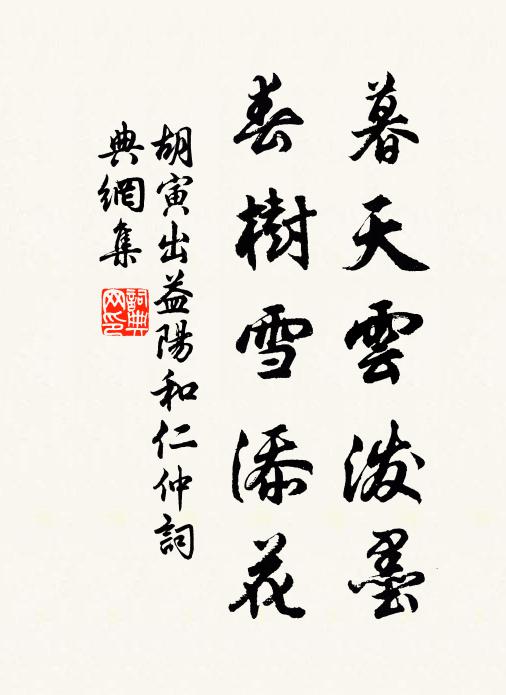 暮天雲潑墨
春樹雪添花
胡寅出益陽和仁仲詞
典網集
詞典網印